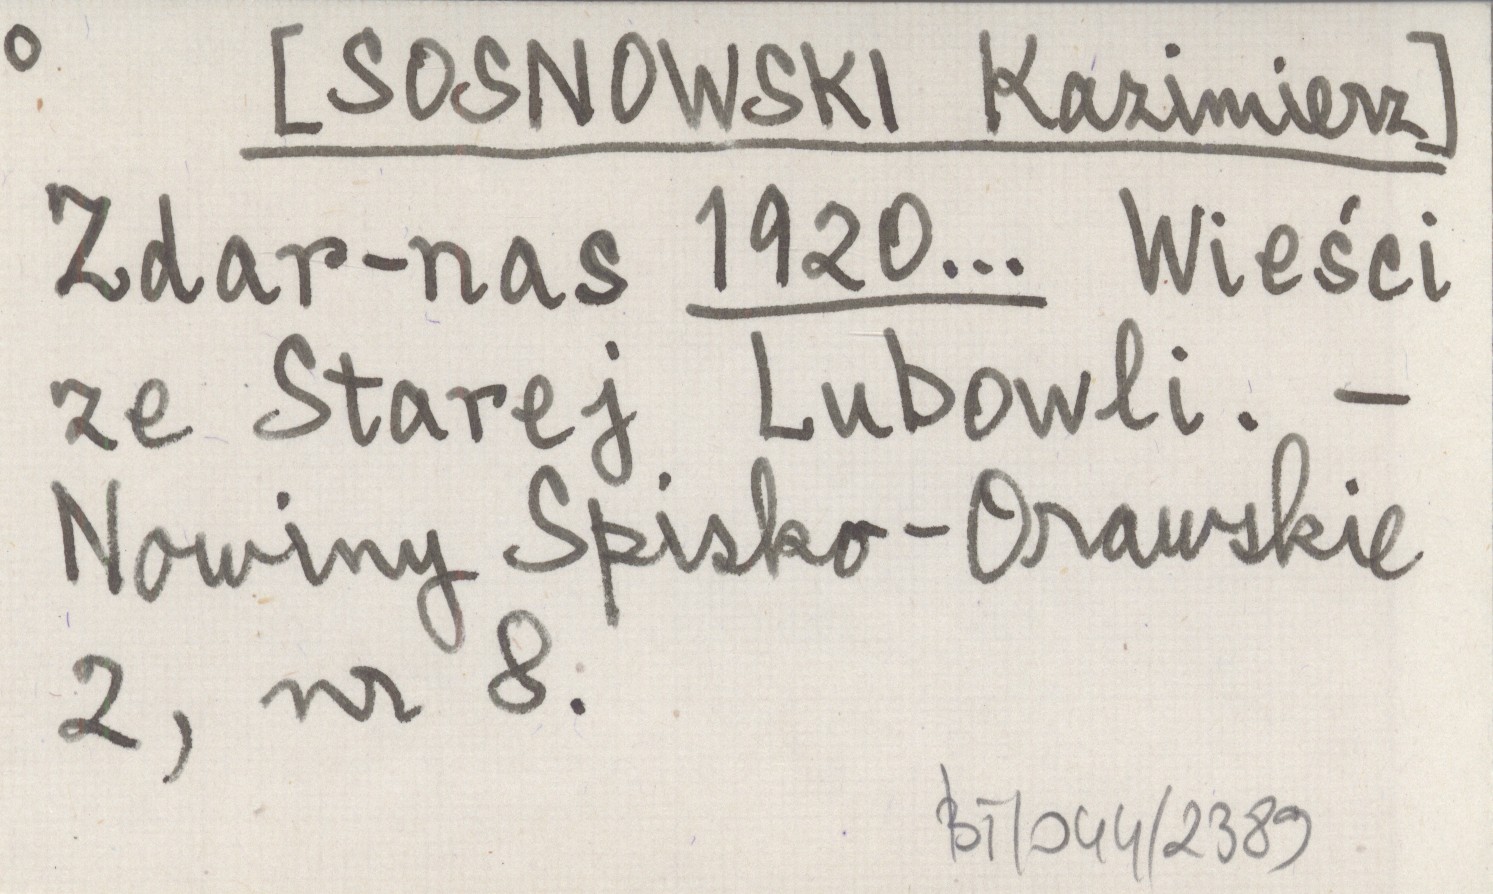 [SOSNOWSKI Kazimierz]
Zdar-nas 1920... Wieści
ze Starej Lubowli. -
Nowiny Spisko-Orawskie
2, nr 8.
BT/044/2389